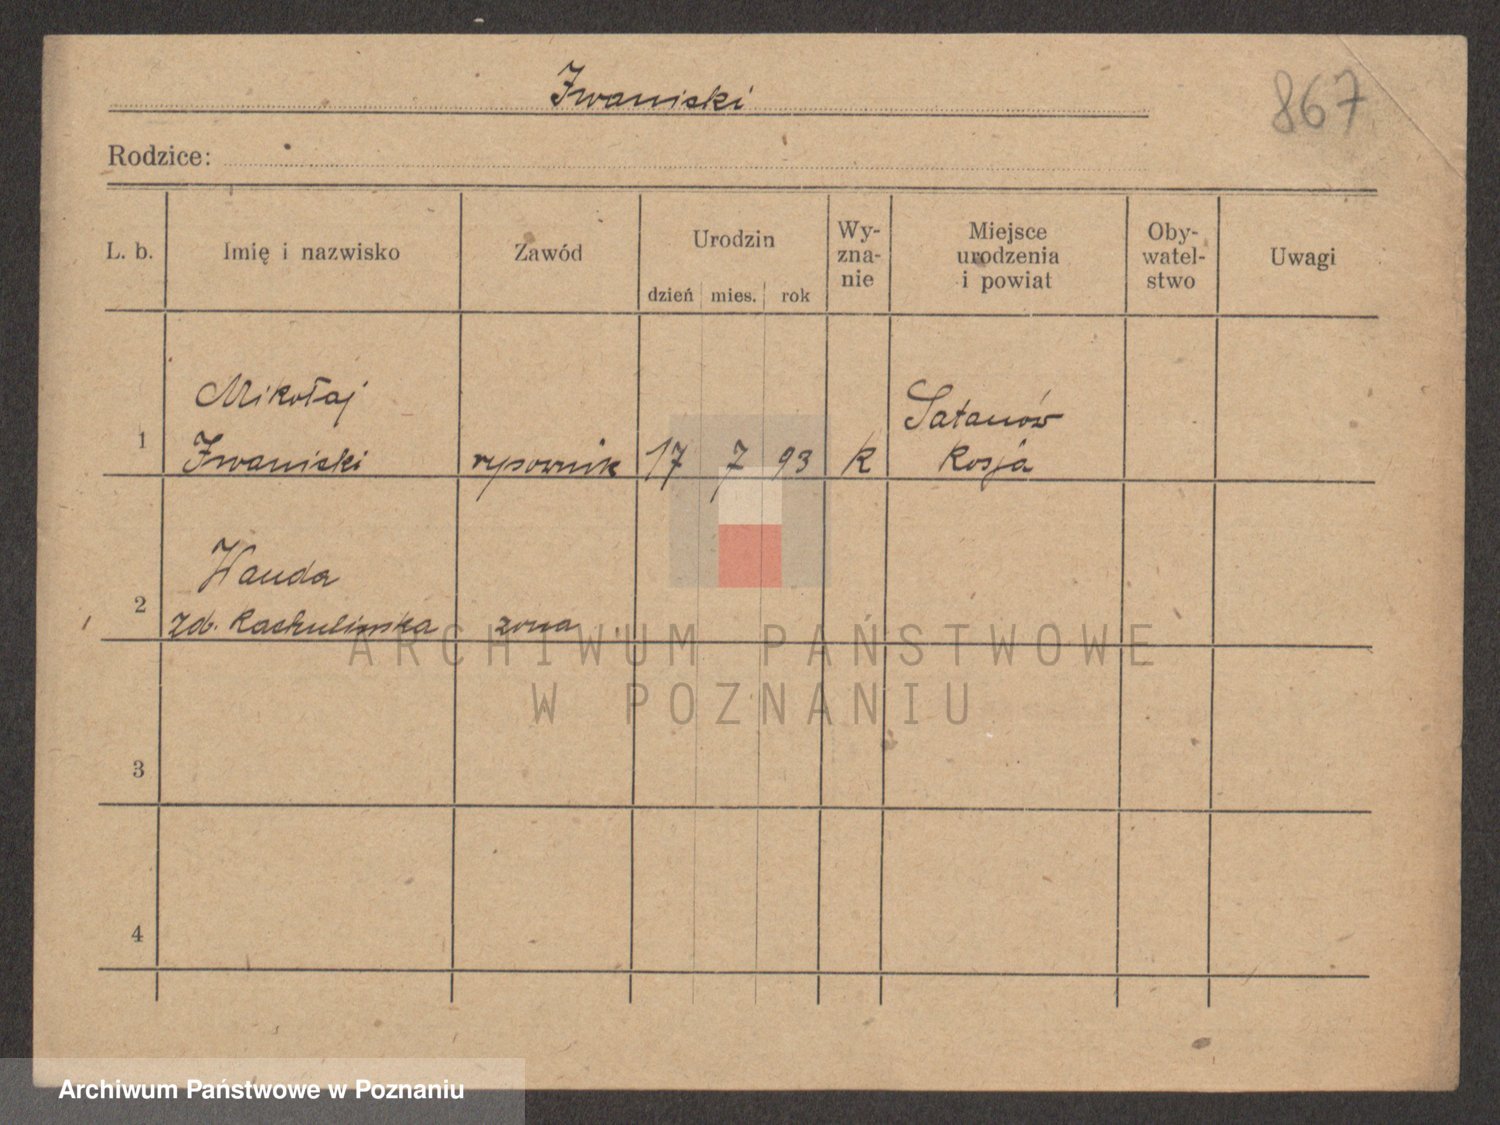 Iwaniski
867
Rodzice:
L. b.
Imię i nazwisko
Zawód
Urodzin
dzień mies. rok
Wy-
zna-
nie
Miejsce
urodzenia
i powiat
Oby-
watel-
stwo
Uwagi
1
Mikołaj
Iwaniski
rysownik
17 7 93
k
Satanów
Rosja
2
Wanda
zd.
żona
3
4
ARCHIWUM PAŃSTWOWE
W POZNANIU
Archiwum Państwowe w Poznaniu